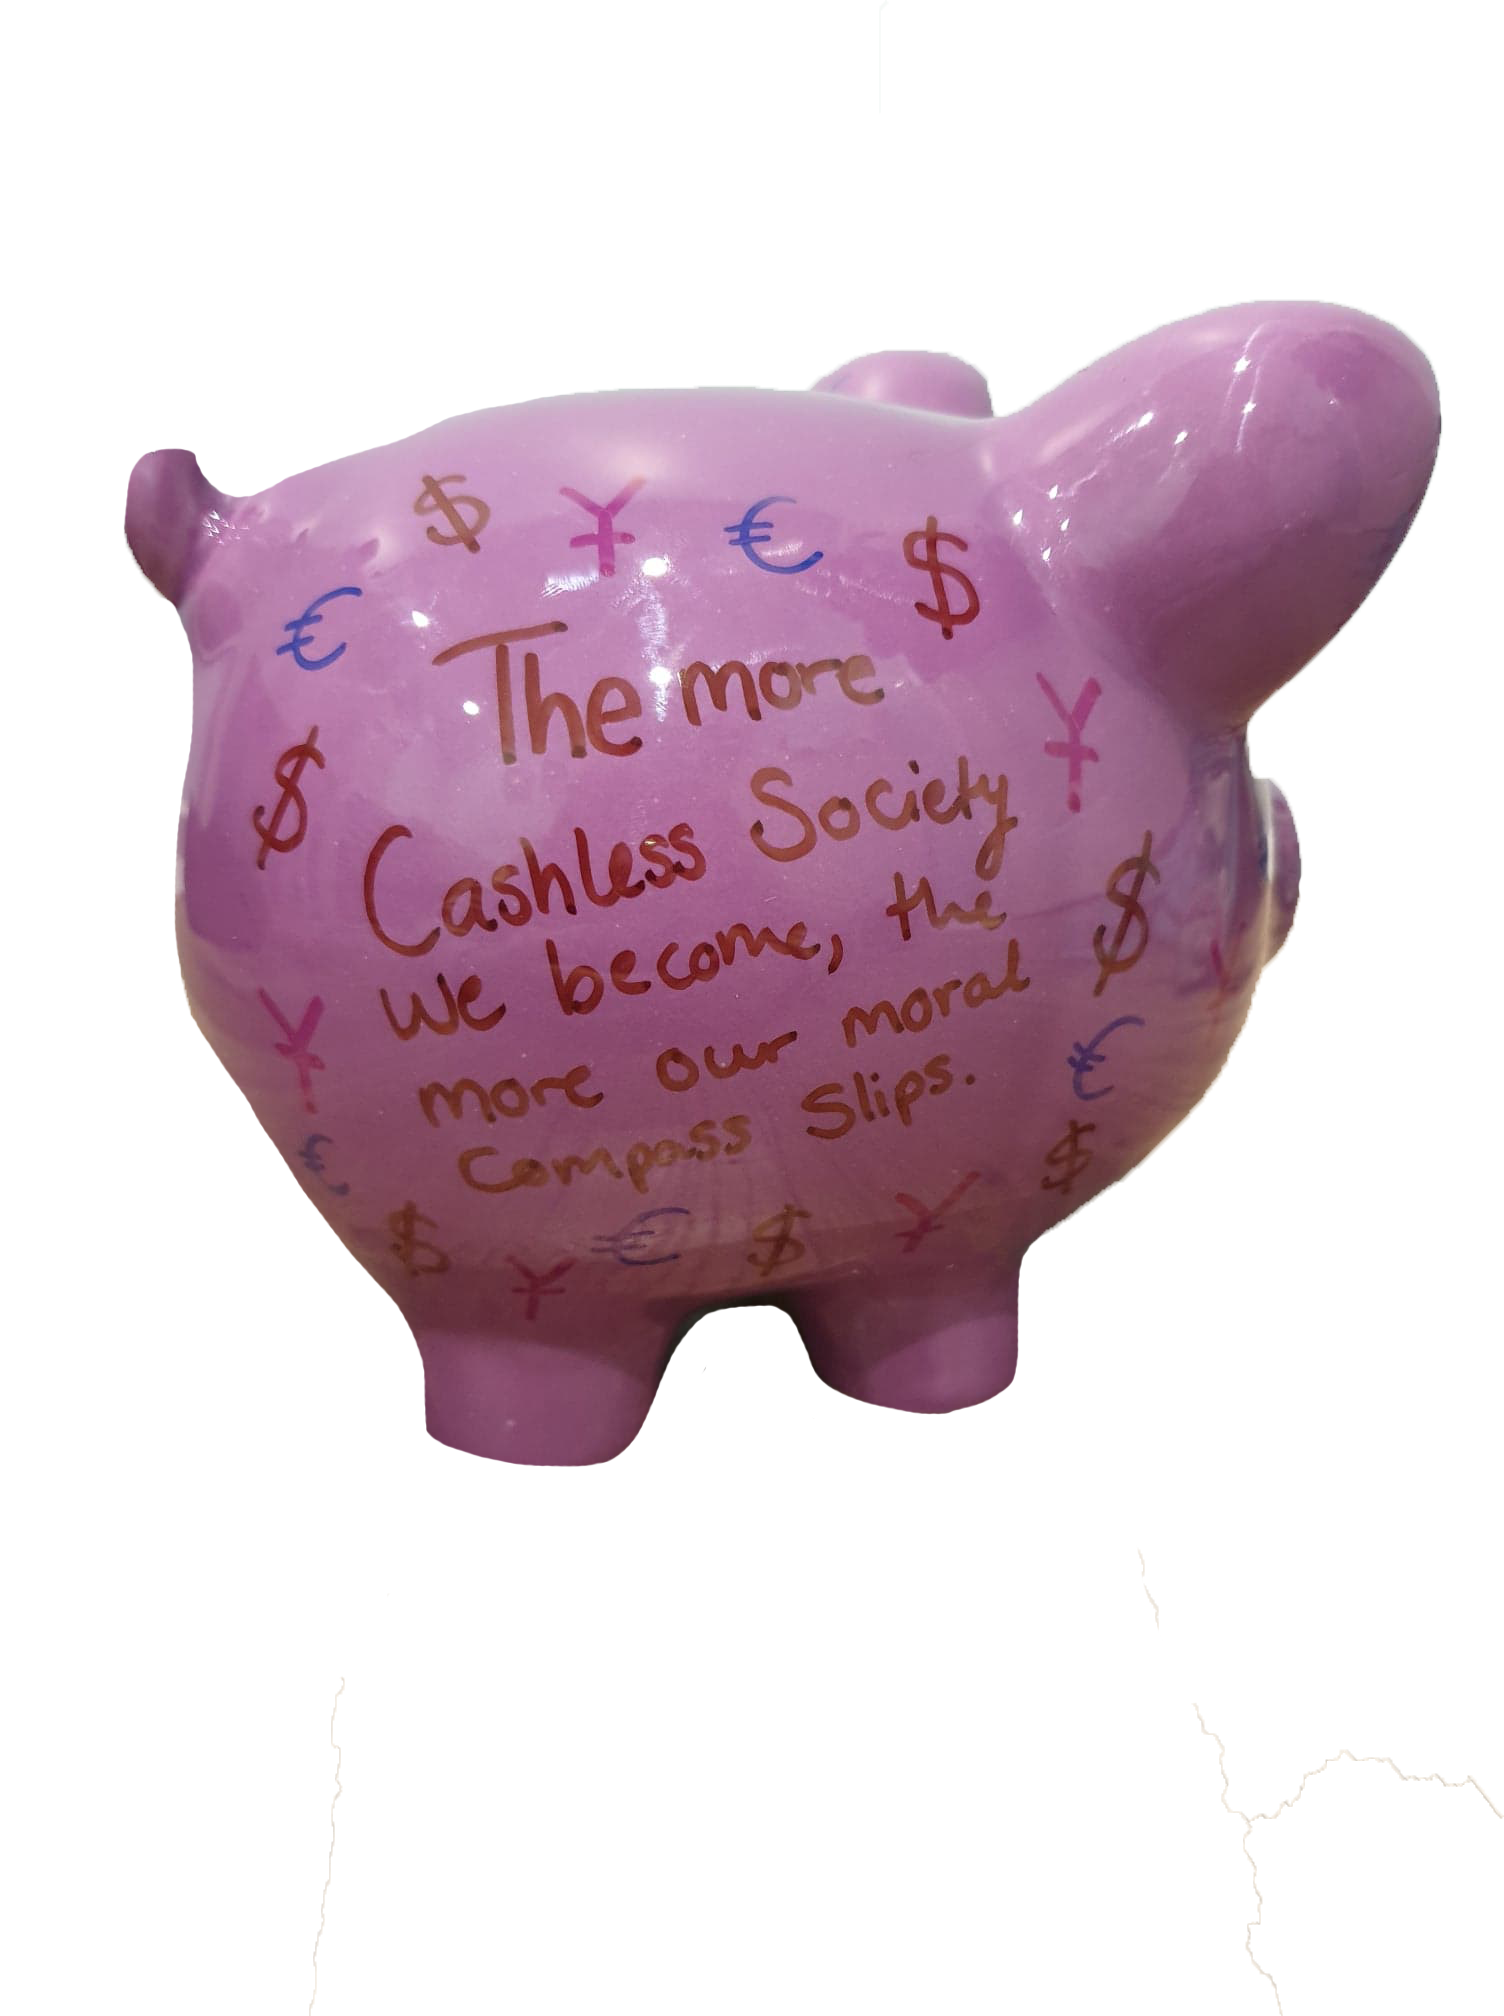 $ ¥ € $
€
The more
$ ¥
Cashless Society
we become, the $
¥ more our moral €
€ Compass Slips. $
$ ¥ € $ ¥